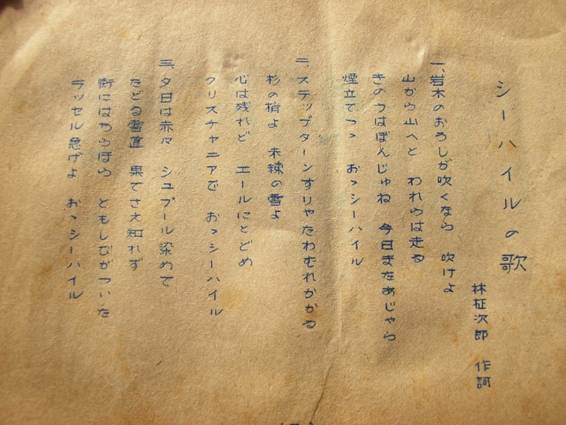 シーハイルの歌
林柾次郎 作詞
一、岩木のおろしが吹くなら 吹けよ
山から山へと われらは走る
きのふはぼんじゅね 今日またあじゃら
煙立てつゝ おゝシーハイル
二、ステップターンすりゃたわむれかかる
杉の梢よ 未練の雪よ
心は残れど エールにとどめ
クリスチャニアで おゝシーハイル
三、夕日は赤々 シュプール染めて
たどる雪道 果てさえ知れず
街にはちらほら ともしびがついた
ラッセル急げよ おゝシーハイル